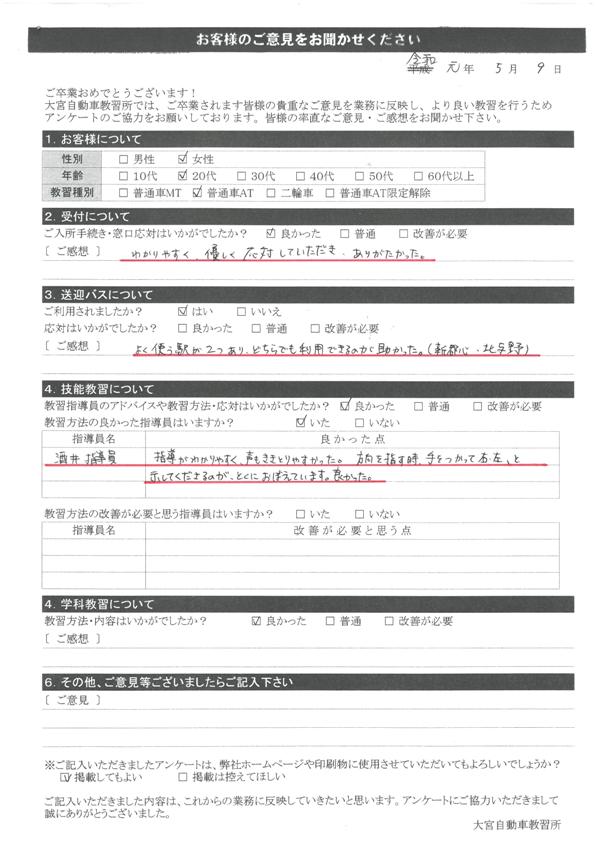 お客様のご意見をお聞かせください
令和
平成 元年 5月 9日
ご卒業おめでとうございます!
大宮自動車教習所では、ご卒業されます皆様の貴重なご意見を業務に反映し、より良い教習を行うため
アンケートのご協力をお願いしております。皆様の率直なご意見・ご感想をお聞かせ下さい。
1. お客様について
性別 □ 男性 ☑ 女性
年齢 □ 10代 ☑ 20代 □ 30代 □ 40代 □ 50代 □ 60代以上
教習種別 □ 普通車MT ☑ 普通車AT □ 二輪車 □ 普通車AT限定解除
2. 受付について
ご入所手続き・窓口応対はいかがでしたか? ☑ 良かった □ 普通 □ 改善が必要
[ ご感想 ] わかりやすく、優しく応対していただき、ありがたかった。
3. 送迎バスについて
ご利用されましたか? ☑ はい □ いいえ
応対はいかがでしたか? □ 良かった □ 普通 □ 改善が必要
[ ご感想 ] よく使う駅が2つあり、どちらでも利用できるのが助かった。(新都心・北与野)
4. 技能教習について
教習指導員のアドバイスや教習方法・応対はいかがでしたか? ☑ 良かった □ 普通 □ 改善が必要
教習方法の良かった指導員はいますか? ☑ いた □ いない
指導員名 良かった点
酒井 指導員 指導がわかりやすく、声もききとりやすかった。 方向を指す時、手をつかって右、左、と
示してくださるのが、とくにおぼえています。良かった。
教習方法の改善が必要と思う指導員はいますか? □ いた □ いない
指導員名 改善が必要と思う点
4. 学科教習について
教習方法・内容はいかがでしたか? ☑ 良かった □ 普通 □ 改善が必要
[ ご感想 ]
6. その他、ご意見等ございましたらご記入下さい
[ ご意見 ]
※ご記入いただきましたアンケートは、弊社ホームページや印刷物に使用させていただいてもよろしいでしょうか?
☑ 掲載してもよい □ 掲載は控えてほしい
ご記入いただきました内容は、これからの業務に反映していきたいと思います。アンケートにご協力いただきまして
誠にありがとうございました。
大宮自動車教習所